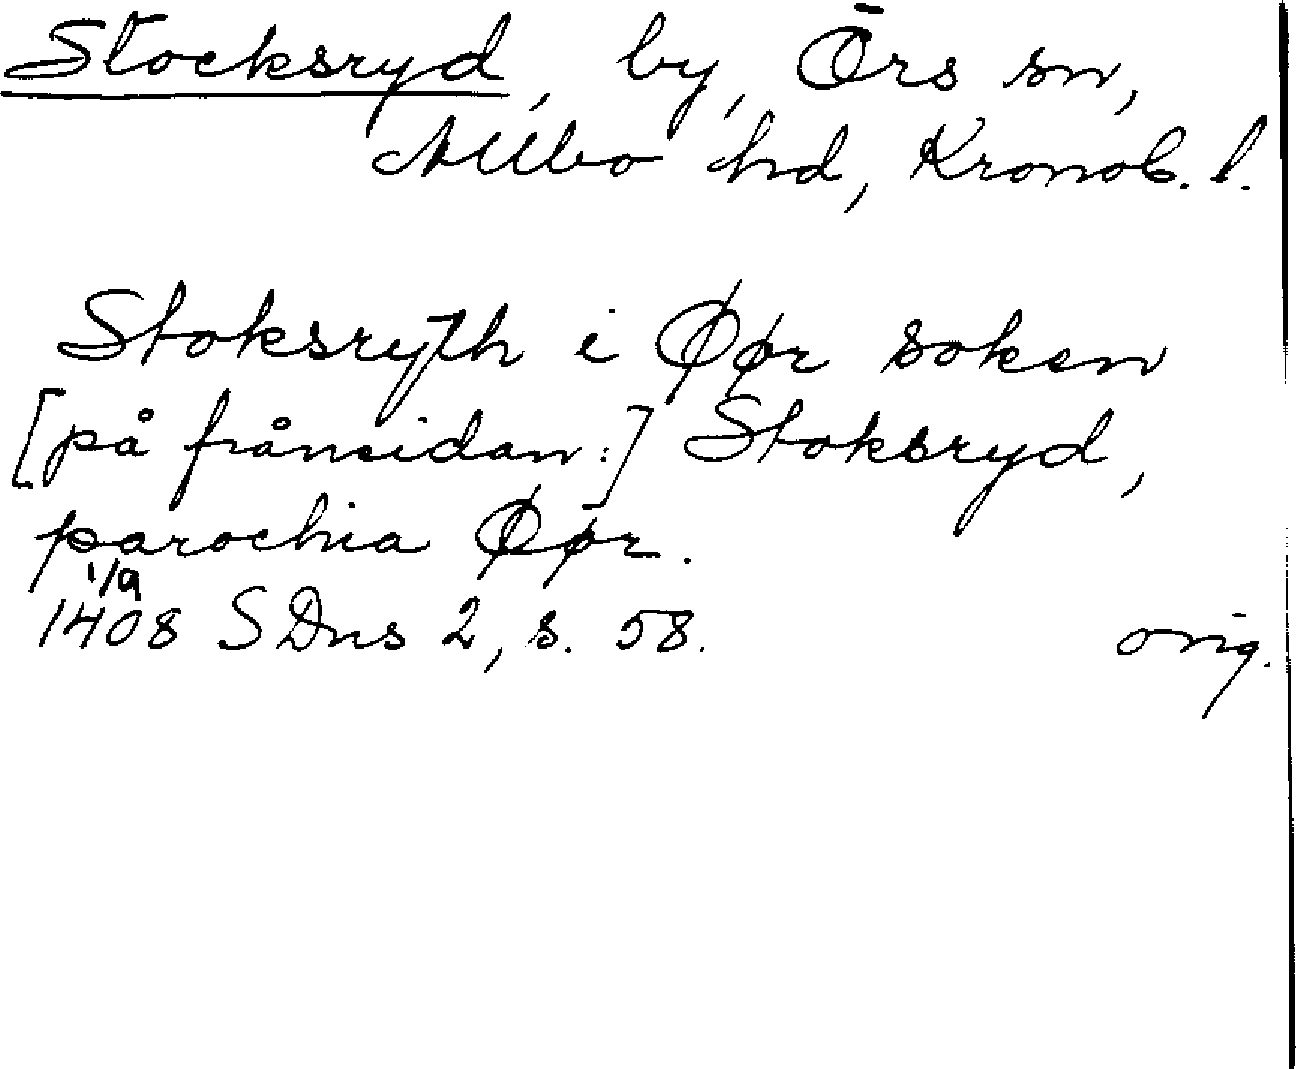 Stocksryd, by, Örs sn,
Allbo hd, Kronob. l.
Stoksryth i Øør soken
[på frånsidan:] Stoksryd,
parochia Øør.
1/9
1408 SDns 2, s. 58. orig.